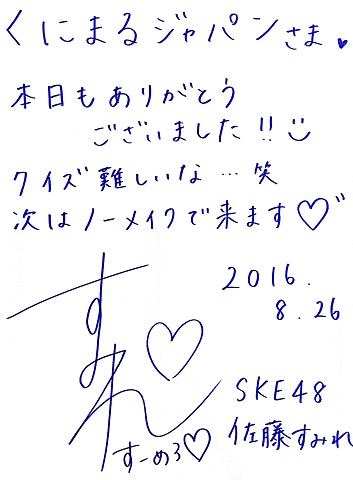 くにまるジャパンさま♥
本日もありがとう
ございました!!
クイズ難しいな…笑
次はノーメイクで来ます♡"
2016.
8.26
すみれ♡
SKE48
佐藤すみれ
すーめろ♡